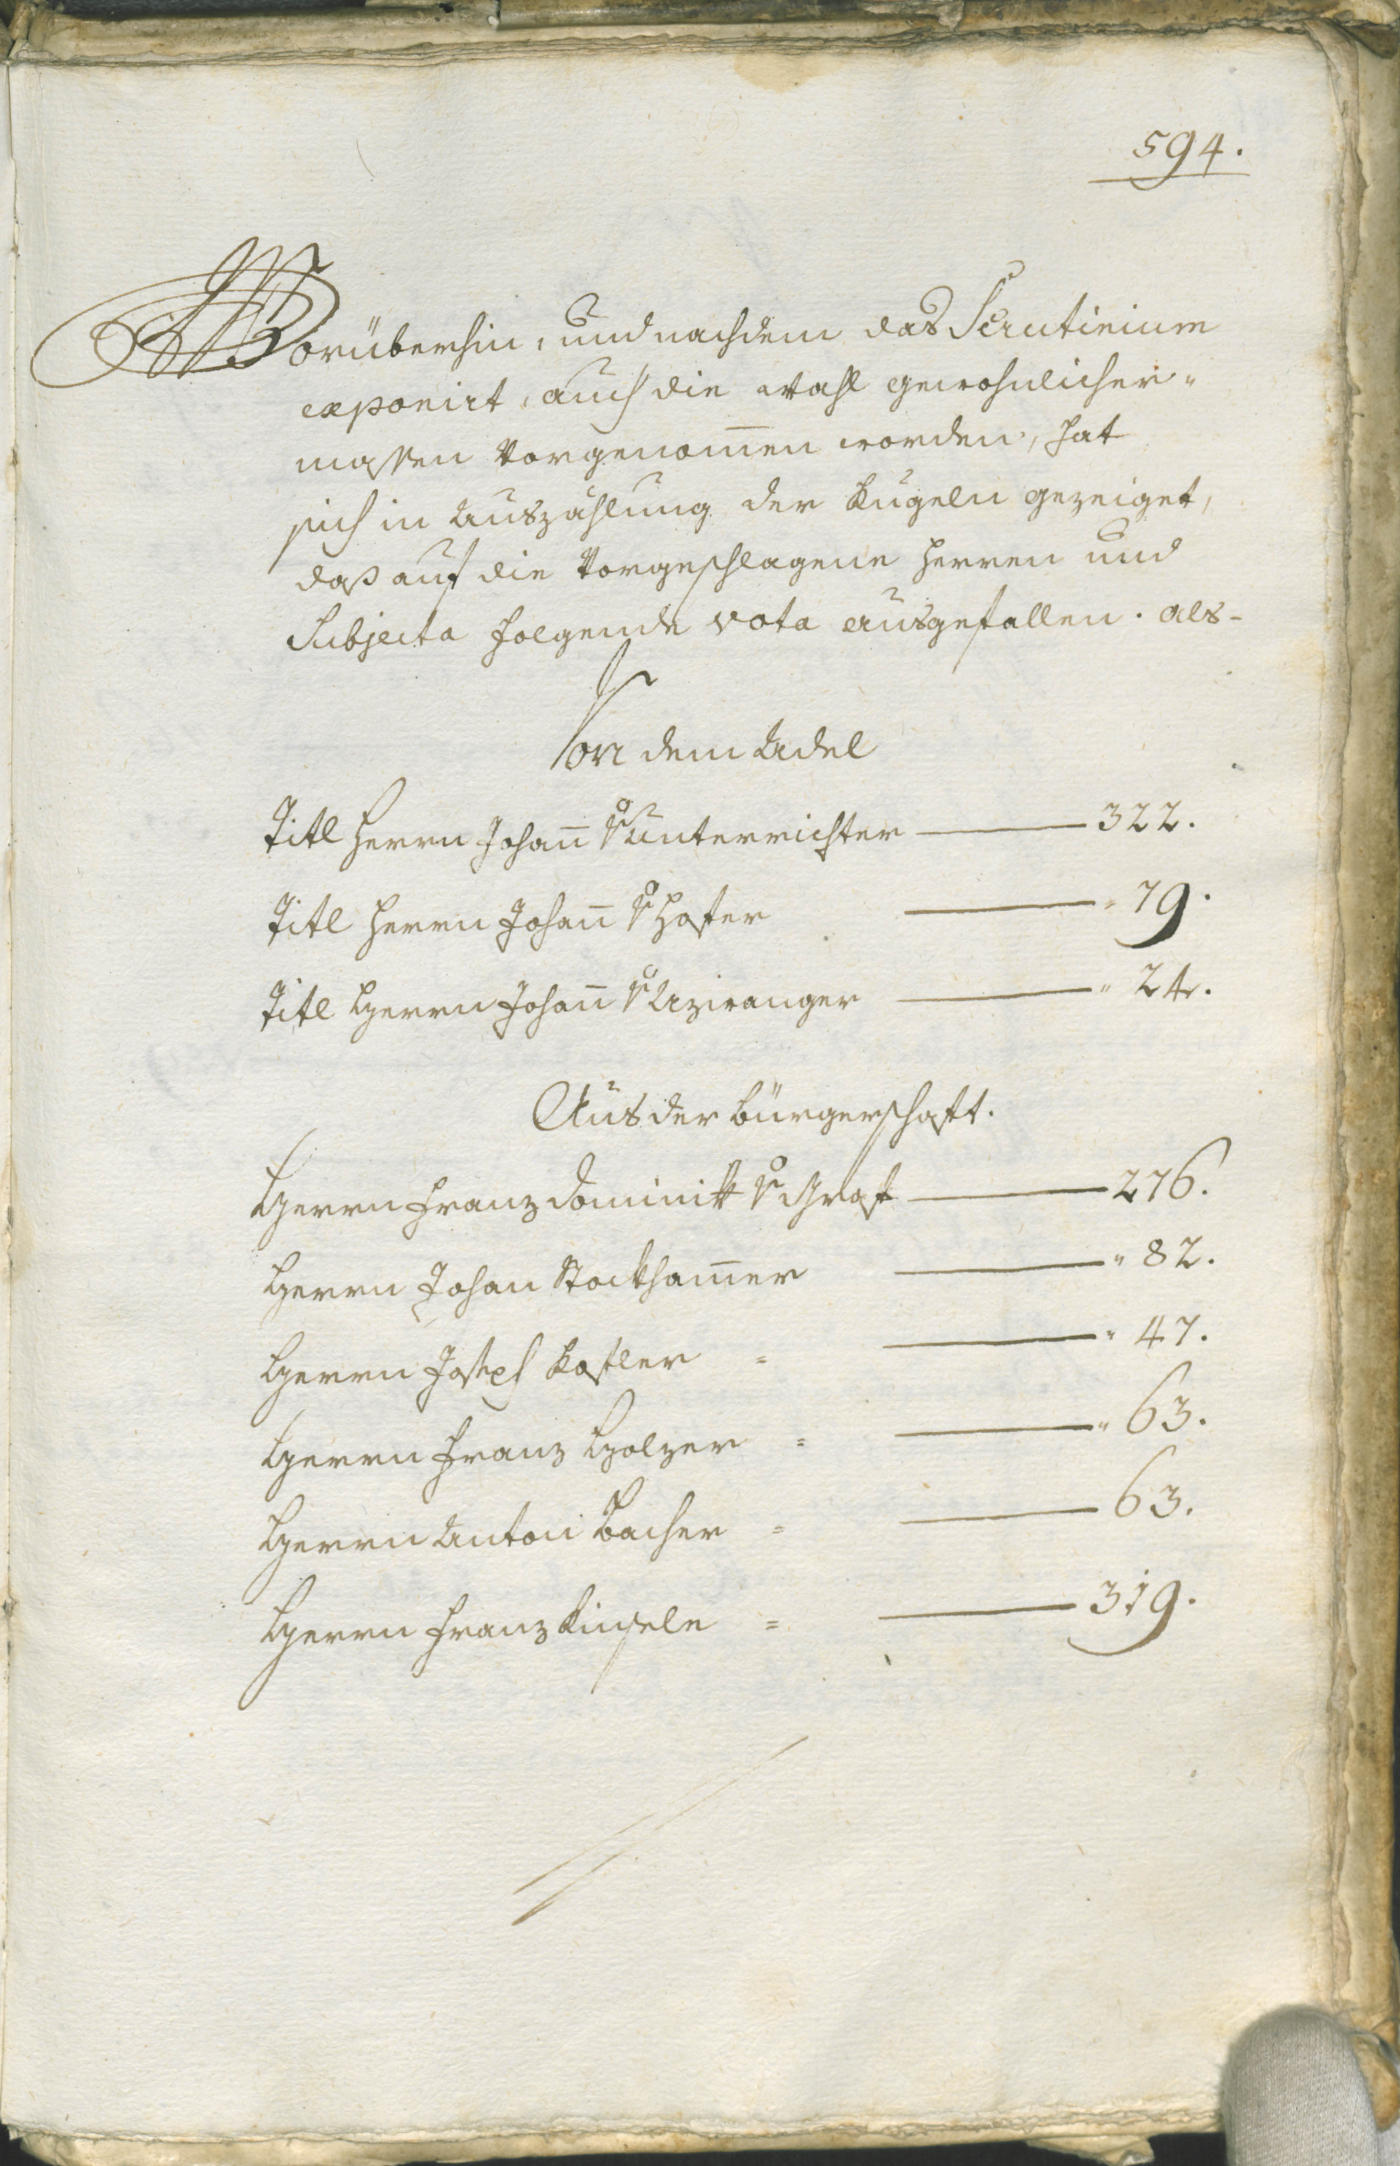 594.
Worüberhin, und nachdem das Scrutinium
exponirt, auch die wahl gewohnlicher-
massen vorgenom̄en worden, hat
sich in Auszählung der Kugeln gezeiget,
daß auf die vorgeschlagene Herren und
Subjecta folgende vota ausgefallen. als-
Von dem Adel
Titl Herrn Johan̄ v Unterrichter — 322.
Titl Herrn Johan̄ v Hofer — " 79.
Titl Herrn Johan̄ v Azwanger — " 24.
Aus der bürgerschaft.
Herrn Franz Dominikh v Graf — 276.
Herrn Johan Stockham̄er — " 82.
Herrn Joseph Kofler = — " 47.
Herrn Franz Holzer = — " 63.
Herrn Anton Bacher = — 63.
Herrn Franz Kinsele = — 319.